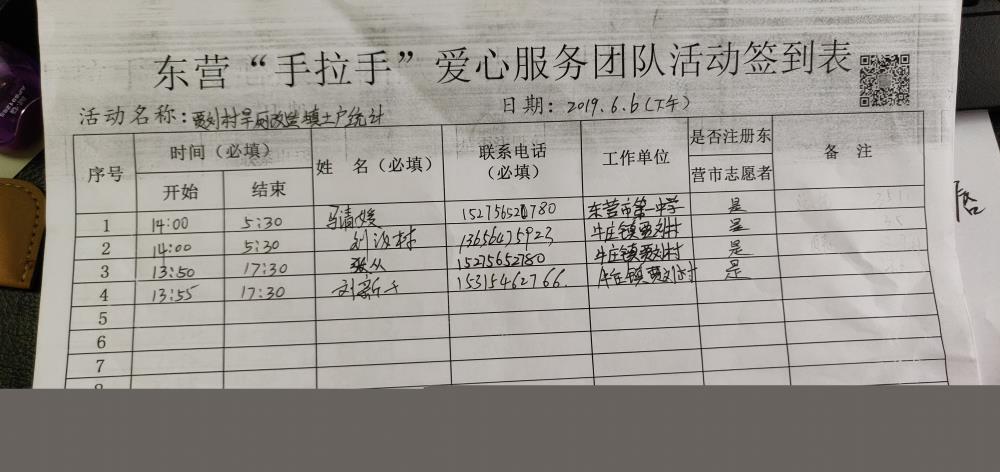 东营“手拉手”爱心服务团队活动签到表
活动名称：贾刘村旱厕改造填土户统计 日期：2019.6.6(下午)
序号 时间（必填） 姓 名（必填） 联系电话（必填） 工作单位 是否注册东营市志愿者 备 注
开始 结束
1 14:00 5:30 马清媛 东营市第一中学 是
2 14:00 5:30 刘 村 13656475923 牛庄镇贾刘村 是
3 13:50 17:30 张从 15275652780 牛庄镇贾刘村 是
4 13:55 17:30 刘 15315462766. 牛庄镇贾刘村 是
5
6
7